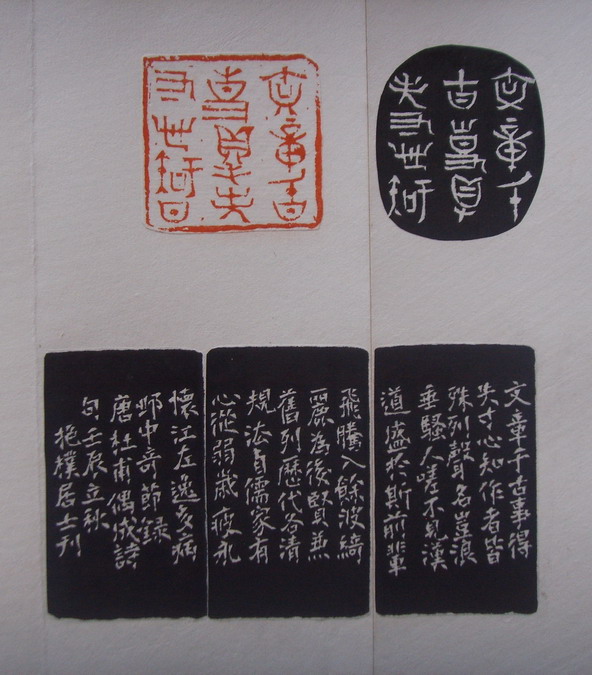 文章千
古事得
失寸心知
文章千古
事得失
寸心知
文章千古事得
失寸心知作者皆
殊列聲名豈浪
垂騷人嗟不見漢
道盛於斯前輩
飛騰入餘波綺
麗為後賢兼
舊列歷代各清
規法自儒家有
心從弱歲疲永
懷江左逸多病
邺中奇節録
唐杜甫偶成
句壬辰立秋
抱樸居士刊